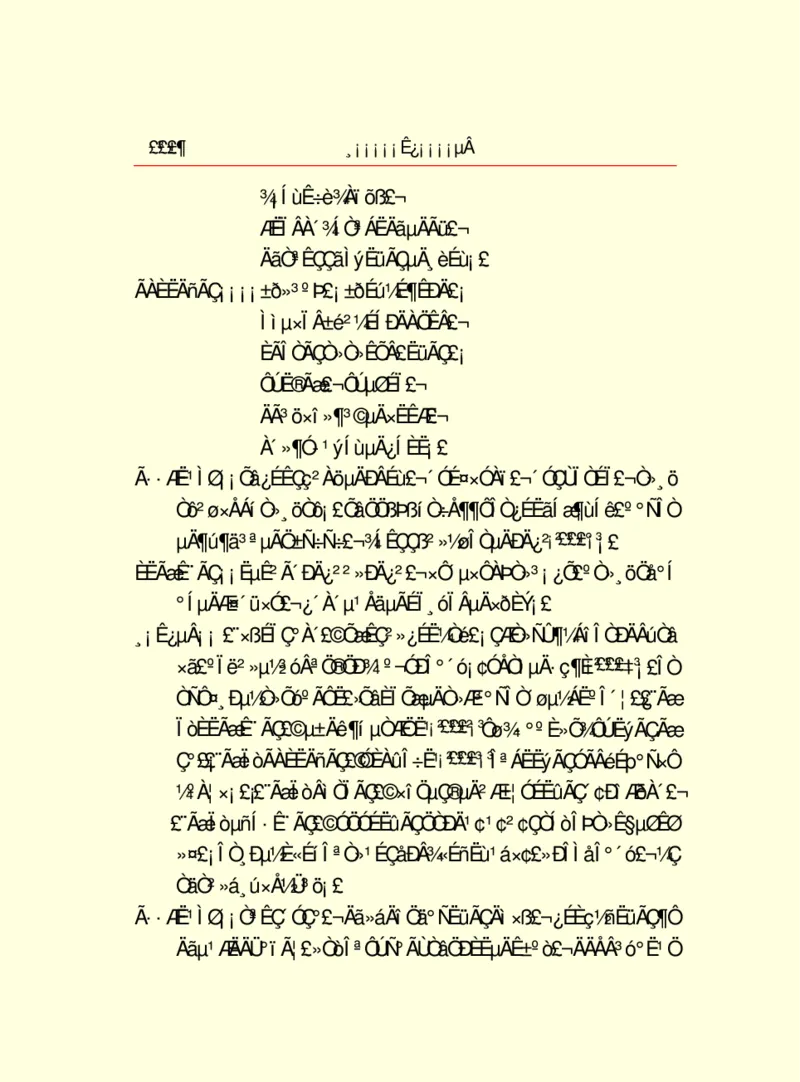 £££¶ ¸¡¡¡¡¡Ê¿¡¡¡¡µÂ
¾¡ÍùÊ÷è¾Àïõß£¬
ÆËÏÂÀ´¾ÍÒªÁËÄãµÄÃü£¬
ÄãÒªÊÇÇãÌýËüÃÇµÄ¸èÉù¡£
ÃÀÈËÄñÃÇ¡¡¡¡±ð»³ºÞ£¡±ðÉú¼É¶ÊÐÄ£¡
Ììµ×ÏÂ±é²¼ÉÍÐÄÀÖÊÂ£¬
ÈÃÎÒÃÇÒ»Ò»ÊÕÂ£ËüÃÇ£¡
ÔÚË®Ãæ£¬ÔÚµØÉÏ£¬
ÄÃ³ö×î»¶³©µÄ×ËÊÆ£¬
À´»¶Ó­¹ýÍùµÄ¿ÍÈË¡£
Ã··ÆË¹ÌØ¡¡Õâ¿ÉÊÇç²ÀöµÄÐÂÉù£¬´ÓÉ¤×ÓÀï£¬´ÓÇÙÏÒÉÏ£¬Ò»¸ö
Òô²ø×ÅÁíÒ»¸öÒô¡£ÕâÖÖßÞßíÒ÷Å¶¶ÔÎÒ¿ÉËãÍæ¶ùÍê£º°ÑÎÒ
µÄ¶ú¶ä³ªµÃÖ±Ñ÷Ñ÷£¬¾ÍÊÇÇß²»½øÎÒµÄÐÄ¿²¡£££¡³¡£
ÈËÃæÊ¨ÃÇ¡¡ËµÊ²Ã´ÐÄ¿²²»ÐÄ¿²£¬×Ô´µ×ÔÀÞÒ»³¡¿Õ£ºÒ»¸öÖå°Í
°ÍµÄÆ¤´ü×Ó£¬¿´À´µ¹ÅäµÃÉÏ¸óÏÂµÄ×ðÈÝ¡£
¸¡Ê¿µÂ¡¡£¨×ßÉÏÇ°À´£©ÕæÊÇ²»¿ÉË¼Òé£¡ÇÆÒ»ÑÛ¶¼ÁîÎÒÐÄÂúÒâ
×ã£ºÏë²»µ½³óÂªÖ®ÖÐ¾¹º¬ÓÐÎ°´ó¡¢ÓÅÒìµÄ·ç¶È£££‡¡£ÎÒ
ÒÑÔ¤¸Ðµ½Ò»ÕóºÃÔË£»ÕâÈÏÕæµÄÒ»Æ³°ÑÎÒÒøµ½ÁËºÎ´¦£¿£¨Ãæ
ÏòÈËÃæÊ¨ÃÇ£©µ±Äê¶íµÒÆÖË¹¡£££¡³Ôø¾­°ºÈ»Õ¾ÔÚËýÃÇÃæ
Ç°£¿£¨ÃæÏòÃÀÈËÄñÃÇ£©ÓÈÀûÎ÷Ë¹¡£££¡³ÎªÁËËýÃÇÓÃÂéÉþ°Ñ×Ô
¼ºÀ¦×¡£¿£¨ÃæÏòÂìÒÏÃÇ£©×îÕäµÇ®µÄ²Æ±¦ÓÉËûÃÇ´¢ÐîÆðÀ´£¬
£¨ÃæÏòµñÍ·Ê¨ÃÇ£©ÓÖÓÉËûÃÇÖÒÐÄ¹¢¹¢²¢ÇÒÏòÎÞÒ»Ê§µØÊØ
»¤£¡ÎÒ¸Ðµ½È«ÉíÎªÒ»¹ÉÇåÐÂ¾«ÉñËù¹á×¢£»ÐÎÌåÎ°´ó£¬¼Ç
ÒäÒ²»á¸ú×Å¼Ü³ö¡£
Ã··ÆË¹ÌØ¡¡ÒªÊÇ´ÓÇ°£¬Äã»áÄîÒâ°ÑËüÃÇÄî×ß£¬¿ÉÈç½ñËüÃÇ¶Ô
Äãµ¹ÆÄÄÜ°ïÃ¦£»ÒòÎªÔÚÑ°ÃÙÒâÖÐÈËµÄÊ±ºò£¬ÄÄÅÂ³ó°Ë¹Ö